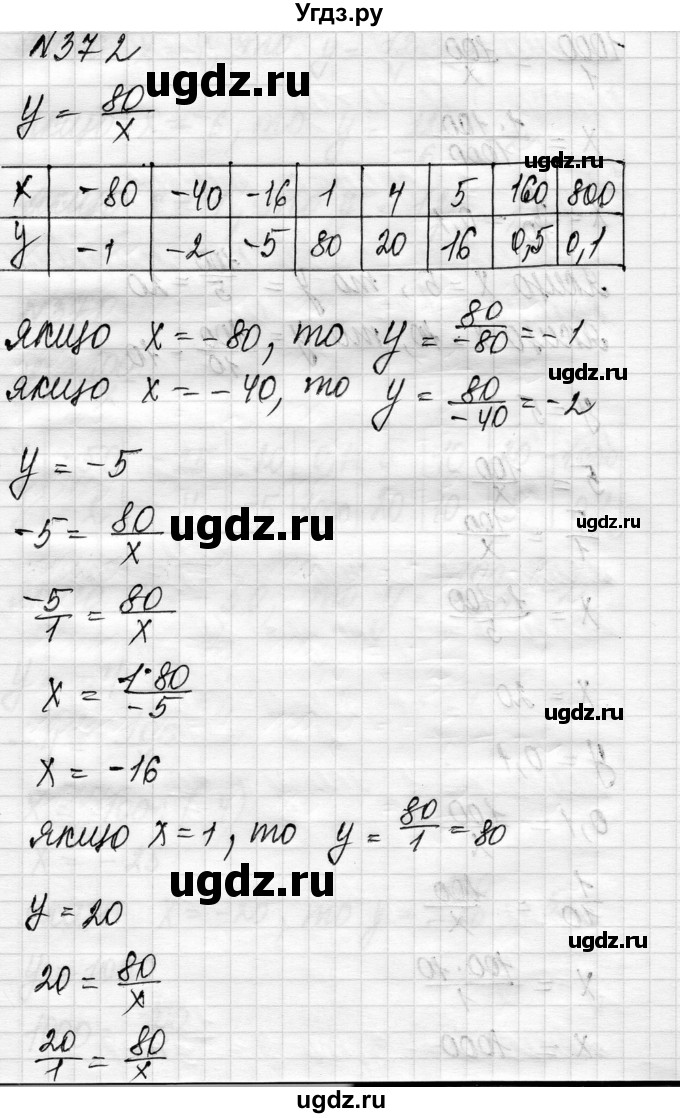 Угдз.ру
N372
ugdz.ru
y = 80/x
ugdz.ru
x -80 -40 -16 1 4 5 160 800
y -1 -2 -5 80 20 16 0,5 0,1
якщо x = -80, то y = 80/-80 = -1
ugdz.ru
якщо x = -40, то y = 80/-40 = -2
y = -5
-5 = 80/x
ugdz.ru
ugdz.ru
-5/1 = 80/x
x = 1·80/-5
ugdz.ru
x = -16
якщо x = 1, то y = 80/1 = 80
ugdz.ru
y = 20
ugdz.ru
20 = 80/x
20/1 = 80/x
ugdz.ru